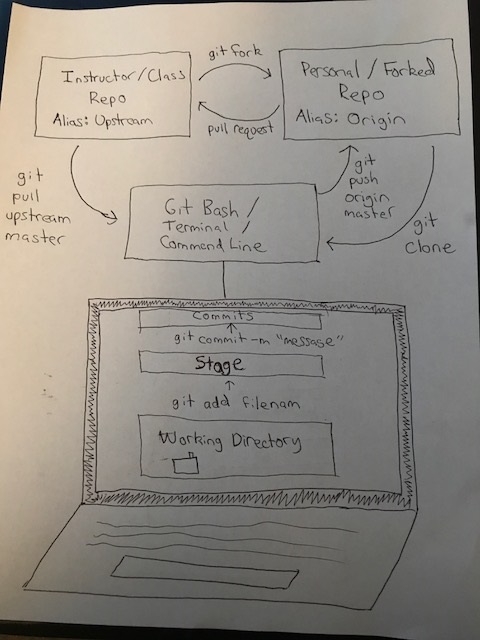 git fork
Instructor/Class
Repo
Alias: Upstream
Personal/Forked
Repo
Alias: Origin
pull request
git
pull
upstream
master
git
push
origin
master
git
clone
Git Bash/
Terminal/
Command Line
Commits
git commit -m "message"
Stage
git add filenam
Working Directory